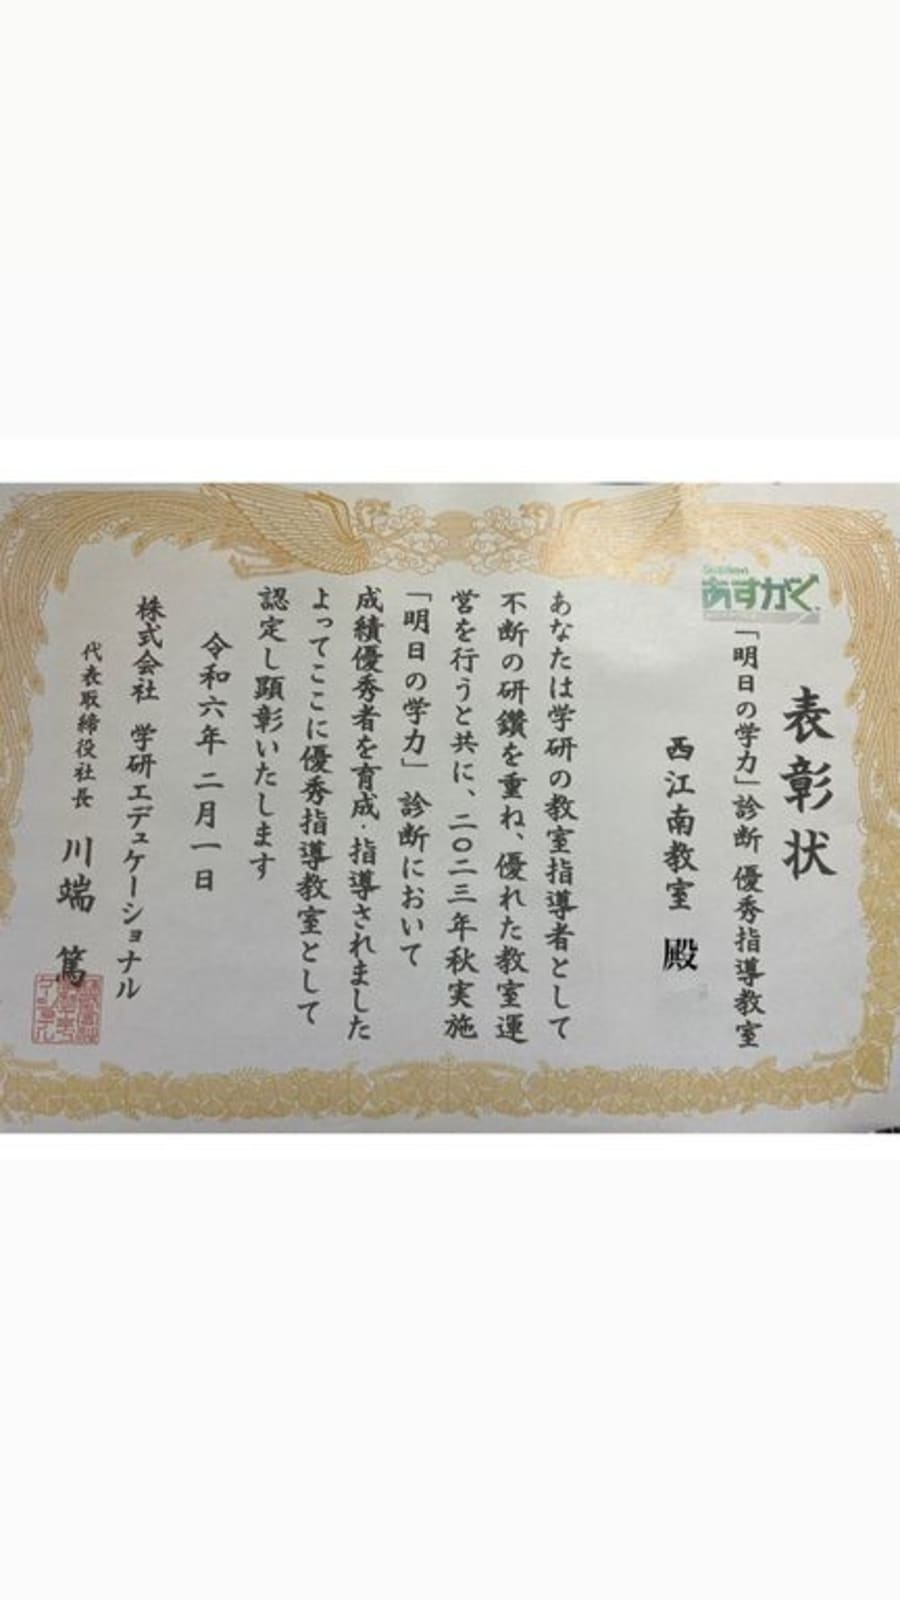 表彰状
あすがく
「明日の学力」診断 優秀指導教室
西江南教室 殿
あなたは学研の教室指導者として
不断の研鑽を重ね、優れた教室運
営を行うと共に、二〇二三年秋実施
「明日の学力」診断において
成績優秀者を育成・指導されました
よってここに優秀指導教室として
認定し顕彰いたします
令和六年 二月一日
株式会社 学研エデュケーショナル
代表取締役社長 川端 篤